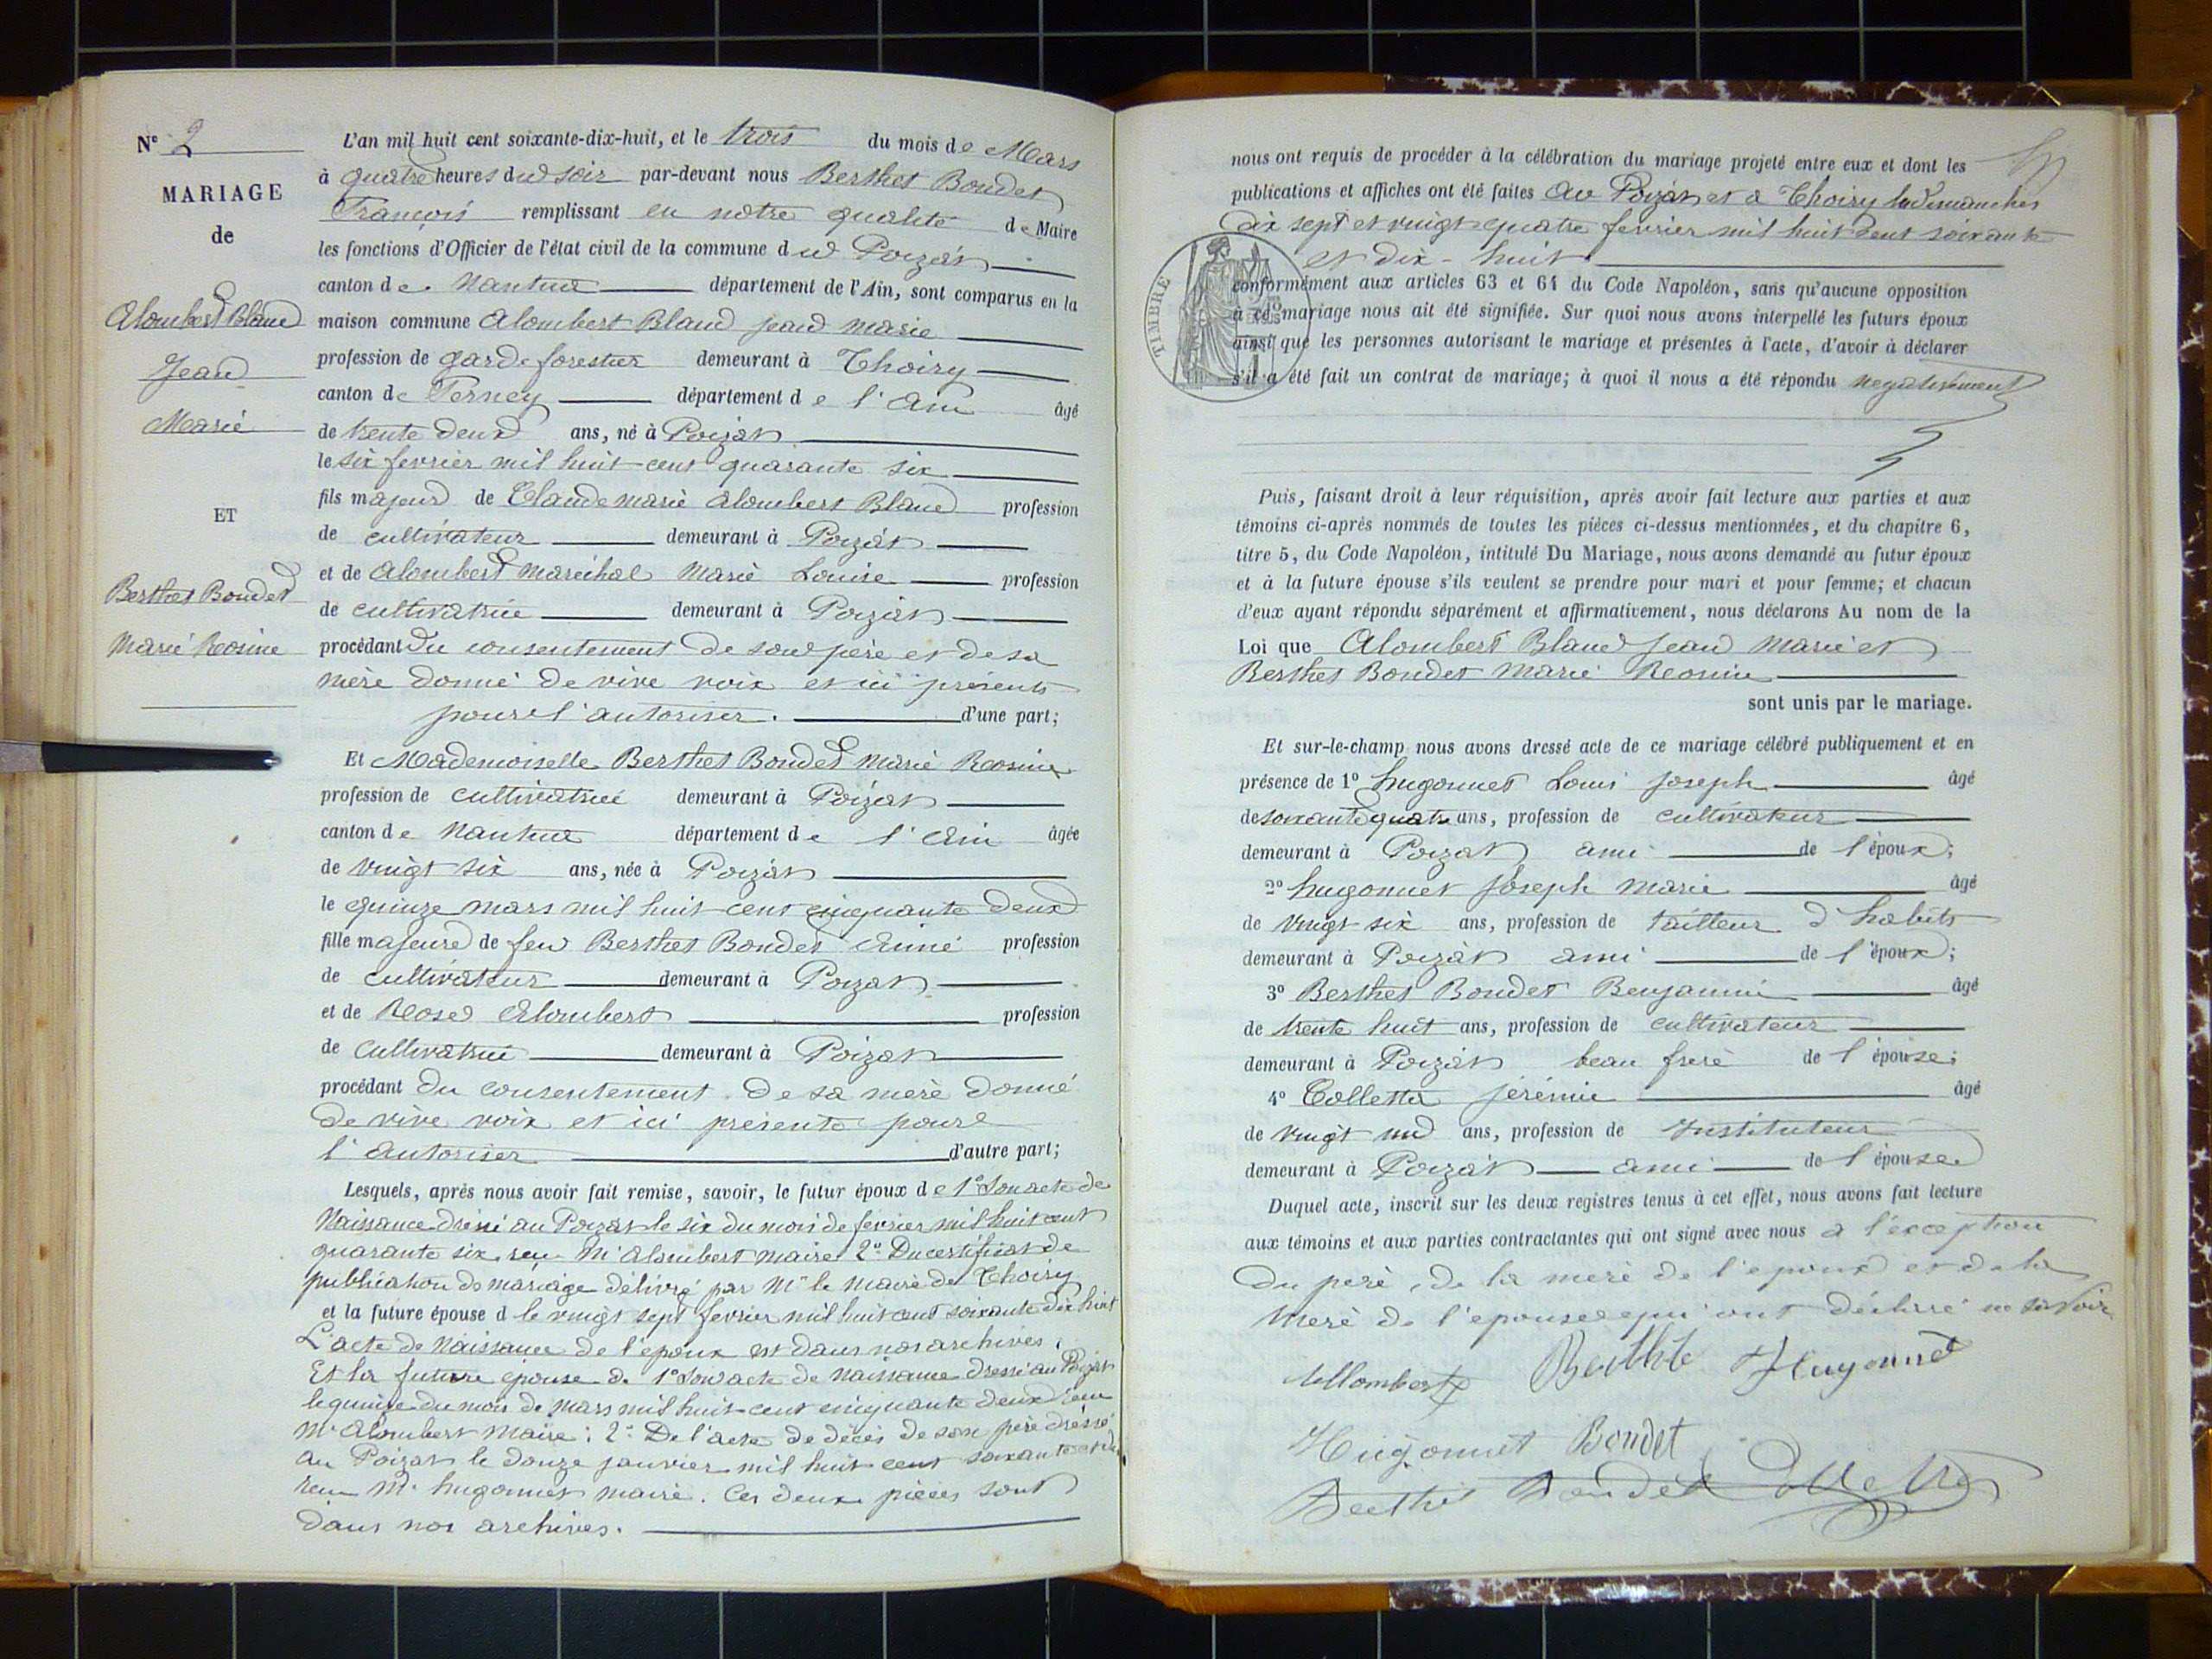 N° 2
MARIAGE
de
Alombert Bland
Jean
Marie
ET
Berthet Bondet
Marie Rosine
L'an mil huit cent soixante-dix-huit, et le trois du mois de Mars
à quatre heures du soir par-devant nous Berthet Bondet
François remplissant en notre qualité de Maire
les fonctions d'Officier de l'état civil de la commune du Poizat
canton de Nantua département de l'Ain, sont comparus en la
maison commune Alombert Bland Jean Marie
profession de garde forestier demeurant à Thoiry
canton de Ferney département de l'Ain âgé
de trente deux ans, né à Poizat
le six fevrier mil huit cent quarante six
fils majeur de Claude marie Alombert Bland profession
de cultivateur demeurant à Poizat
et de Alombert Maréchal Marie Louise profession
de cultivatrice demeurant à Poizat
procédant du consentement de son père et de sa
mère donné de vive voix et ici présents
pour l'autoriser. d'une part;
Et Mademoiselle Berthet Bondet Marie Rosine
profession de cultivatrice demeurant à Poizat
canton de Nantua département de l'Ain âgée
de vingt six ans, née à Poizat
le quinze mars mil huit cent cinquante deux
fille majeure de feu Berthet Bondet Aimé profession
de cultivateur demeurant à Poizat
et de Rose Alombert profession
de cultivatrice demeurant à Poizat
procédant du consentement de sa mère donné
de vive voix et ici présente pour
l'autoriser d'autre part;
Lesquels, après nous avoir fait remise, savoir, le futur époux de 1° Son acte de
Naissance dressé au Poizat le six du mois de février mil huit cent
quarante six, reçu Mr Alombert maire 2° Du certificat de
publication de mariage délivré par Mr le Maire de Thoiry
et la future épouse d le vingt sept fevrier mil huit cent soixante dix huit
L'acte de Naissance de l'epoux est dans nos archives.
Et la future épouse de 1° Son acte de Naissance dressé au Poizat
le quinze du mois de Mars mil huit cent cinquante deux reçu
Mr Alombert Maire: 2° De l'acte de décès de son père dressé
au Poizat le douze janvier mil huit cent soixante et
reçu Mr hugonnet maire. Ces deux pièces sont
dans nos archives.
nous ont requis de procéder à la célébration du mariage projeté entre eux et dont les
publications et affiches ont été faites au Poizat et a Thoiry les dimanches
dix sept et vingt quatre fevrier mil huit cent soixante
et dix-huit
TIMBRE
conformément aux articles 63 et 64 du Code Napoléon, sans qu'aucune opposition
à ce mariage nous ait été signifiée. Sur quoi nous avons interpellé les futurs époux
ainsi que les personnes autorisant le mariage et présentes à l'acte, d'avoir à déclarer
s'il a été fait un contrat de mariage; à quoi il nous a été répondu negativement
Puis, faisant droit à leur réquisition, après avoir fait lecture aux parties et aux
témoins ci-après nommés de toutes les pièces ci-dessus mentionnées, et du chapitre 6,
titre 5, du Code Napoléon, intitulé Du Mariage, nous avons demandé au futur époux
et à la future épouse s'ils veulent se prendre pour mari et pour femme; et chacun
d'eux ayant répondu séparément et affirmativement, nous déclarons Au nom de la
Loi que Alombert Bland Jean Marie et
Berthet Bondet Marie Rosine
sont unis par le mariage.
Et sur-le-champ nous avons dressé acte de ce mariage célébré publiquement et en
présence de 1° hugonnet Louis Joseph âgé
de soixante quatre ans, profession de cultivateur
demeurant à Poizat ami de l'époux;
2° hugonnet Joseph Marie âgé
de vingt six ans, profession de tailleur d'habits
demeurant à Poizat ami de l'époux;
3° Berthet Bondet Benjamin âgé
de trente huit ans, profession de cultivateur
demeurant à Poizat beau frere de l'épouse;
4° Colletta Jérémie âgé
de vingt un ans, profession de Instituteur
demeurant à Poizat ami de l'épouse
Duquel acte, inscrit sur les deux registres tenus à cet effet, nous avons fait lecture
aux témoins et aux parties contractantes qui ont signé avec nous a l'exception
du père, de la mère de l'epoux et de la
mère de l'epouse qui ont déclaré ne savoir
Allombert Hugonnet
Hugonnet Bondet
Berthet Bondet